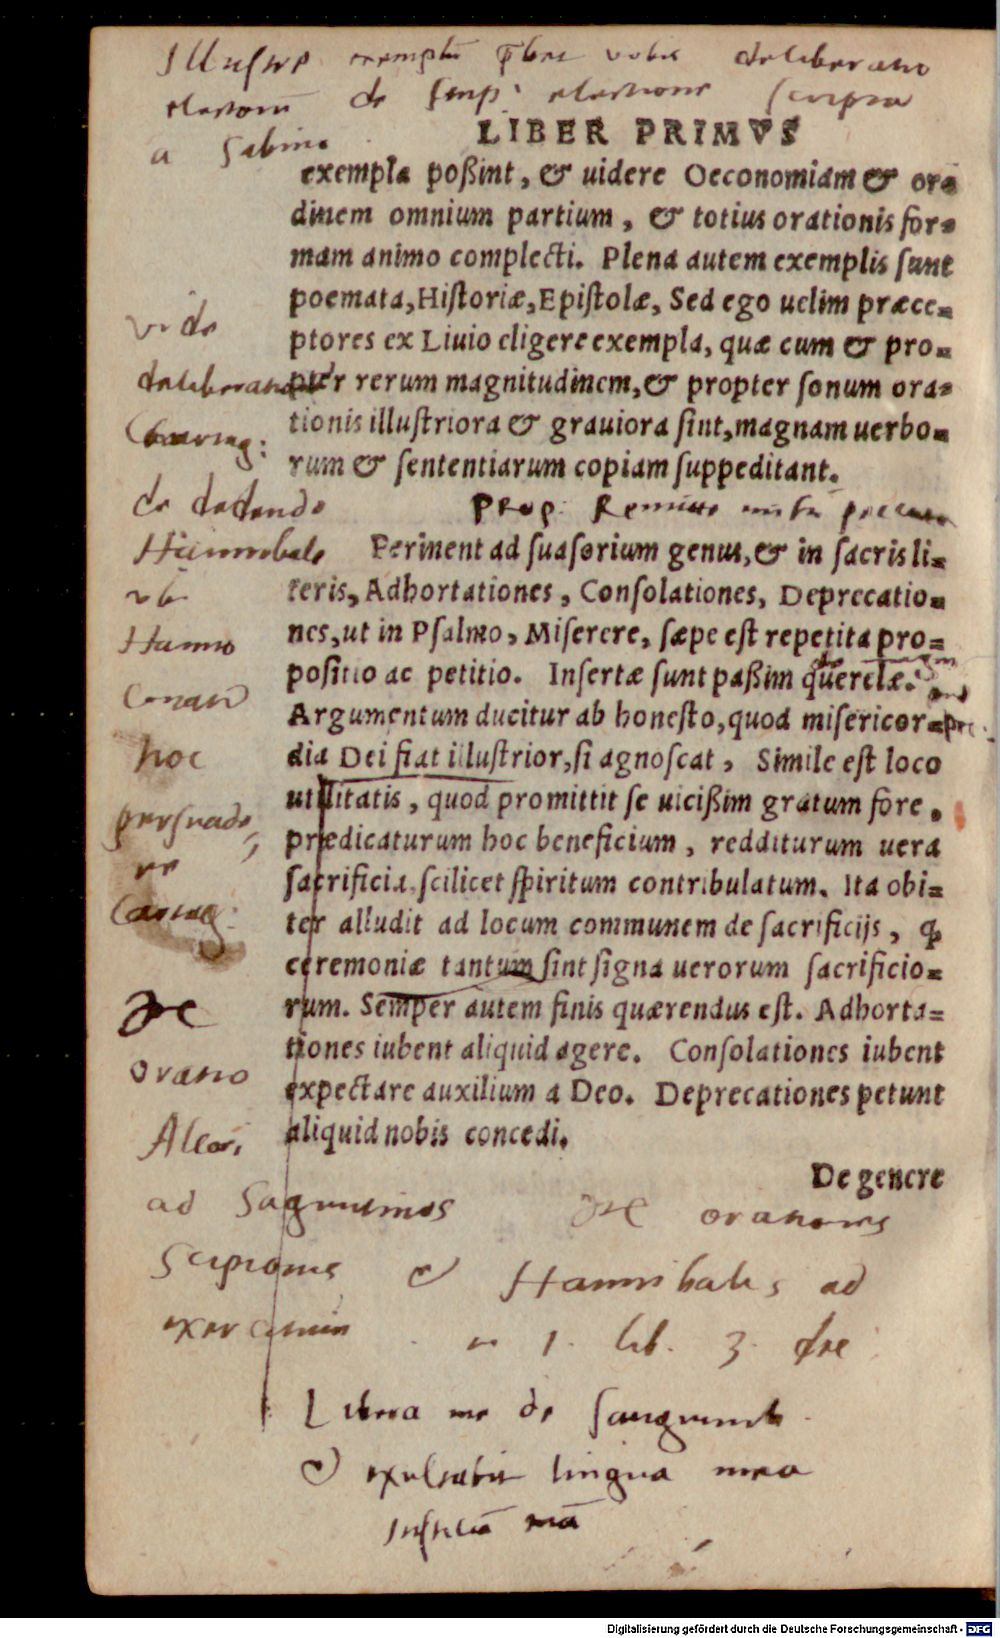 Illustre exemplū vobis deliberatio
de Imp. electione scripta
a Sabino
LIBER PRIMVS
exempla poßint, & uidere Oeconomiam & or=
dinem omnium partium, & totius orationis for=
mam animo complecti. Plena autem exemplis sunt
poemata, Historiæ, Epistolæ, Sed ego uelim præce=
ptores ex Liuio eligere exempla, quæ cum & pro=
pter rerum magnitudinem, & propter sonum ora=
tionis illustriora & grauiora sint, magnam uerbo=
rum & sententiarum copiam suppeditant.
vide
deliberatio
Cartag:
de dedendo
Hannibale
vbi
Hanno
conatur
hoc
persuade
re
Cartag:
Prop: Remitte mihi peccata
Pertinent ad suasorium genus, & in sacris li=
teris, Adhortationes, Consolationes, Deprecatio=
nes, ut in Psalmo, Miserere, sæpe est repetita pro=
positio ac petitio. Insertæ sunt paßim querelæ.
Argumentum ducitur ab honesto, quod misericor=
dia Dei fiat illustrior, si agnoscat, Simile est loco
utilitatis, quod promittit se uicißim gratum fore,
prædicaturum hoc beneficium, redditurum uera
sacrificia, scilicet spiritum contribulatum. Ita obi=
ter alludit ad locum communem de sacrificijs, ꝙ
ceremoniæ tantum sint signa uerorum sacrificio=
rum. Semper autem finis quærendus est. Adhorta=
tiones iubent aliquid agere. Consolationes iubent
expectare auxilium a Deo. Deprecationes petunt
aliquid nobis concedi.
De genere
oratio
Alcon
ad Saguntinos
orationes
Scipionis & Hannibalis ad
exercitum in 1. lib. 3. dec
Libera me de sanguinib.
& exultabit lingua mea
Iustitiā tuā
Digitalisierung gefördert durch die Deutsche Forschungsgemeinschaft - DFG